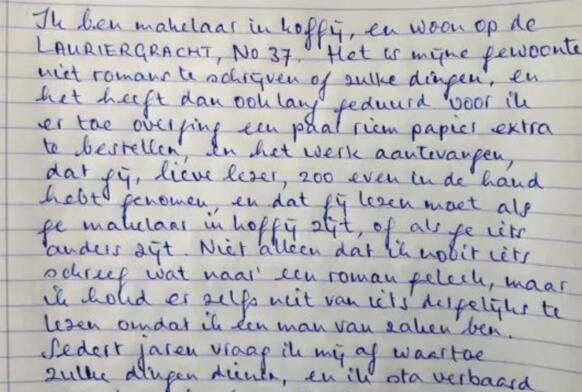 Ik ben makelaar in koffij, en woon op de
LAURIERGRACHT, No 37. Het is mijne gewoonte
niet romans te schrijven of zulke dingen, en
het heeft dan ook lang geduurd voor ik
er toe overging een paar riem papier extra
te bestellen, en het werk aantevangen,
dat gij, lieve lezer, zoo even in de hand
hebt genomen, en dat gij lezen moet als
ge makelaar in koffij zijt, of als ge iets
anders zijt. Niet alleen dat ik nooit iets
schreef wat naar een roman geleek, maar
ik houd er zelfs niet van iets dergelijks te
lezen omdat ik een man van zaken ben.
Sedert jaren vraag ik mij af waartoe
zulke dingen dienen, en ik sta verbaasd